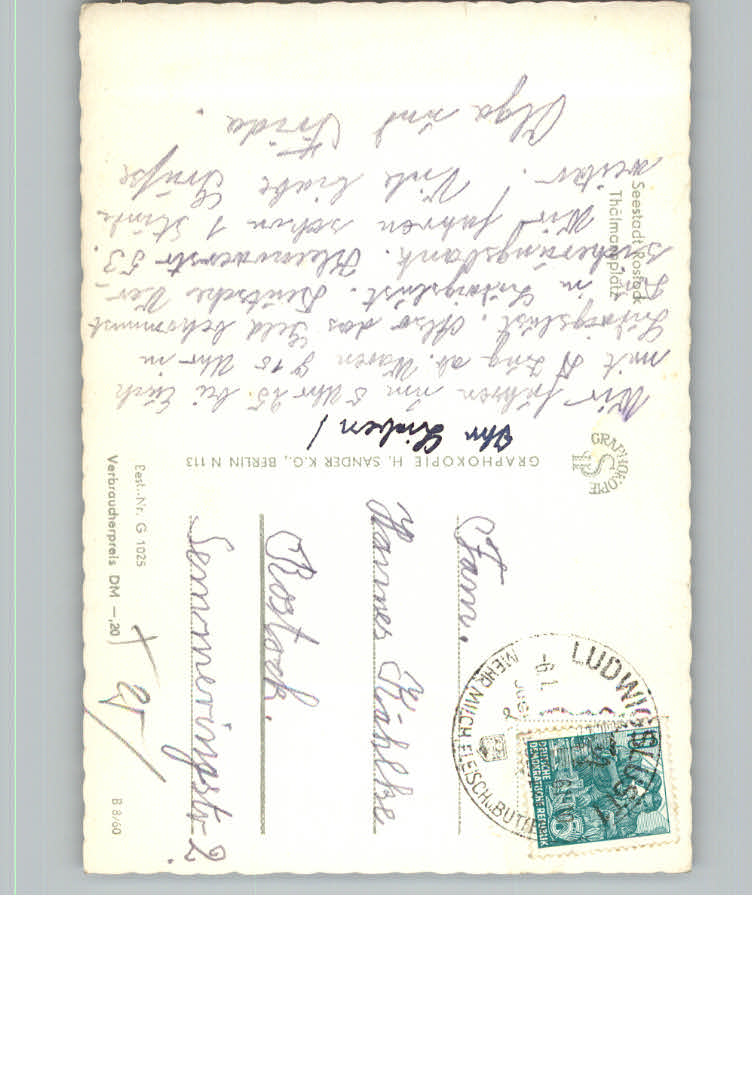 Seestadt Rostock
Thälmannplatz
Ihr Lieben!
Wir fuhren um 5 Uhr 25. bei Euch
mit D Zug ab. Waren 9 15 Uhr in
Ludwigslust. Also das Geld bekommst
in Ludwigslust. Deutsche Ver-
sicherungsbank. 53.
Wir fahren schon 1 Stunde
weiter! Viele liebe Grüße
Olga und Frida.
GRAPHOKOPIE
HS
GRAPHOKOPIE H. SANDER K.G., BERLIN N 113
Best.-Nr. G 1025
Verbraucherpreis DM -,20
B 8/60
LUDWIGSLUST
-6.1.
MEHR MILCH, FLEISCH u. BUTTER
DEUTSCHE
DEMOKRATISCHE REPUBLIK
Fam.
Hannes Kählke
Rostock.
Semmeringstr. 2